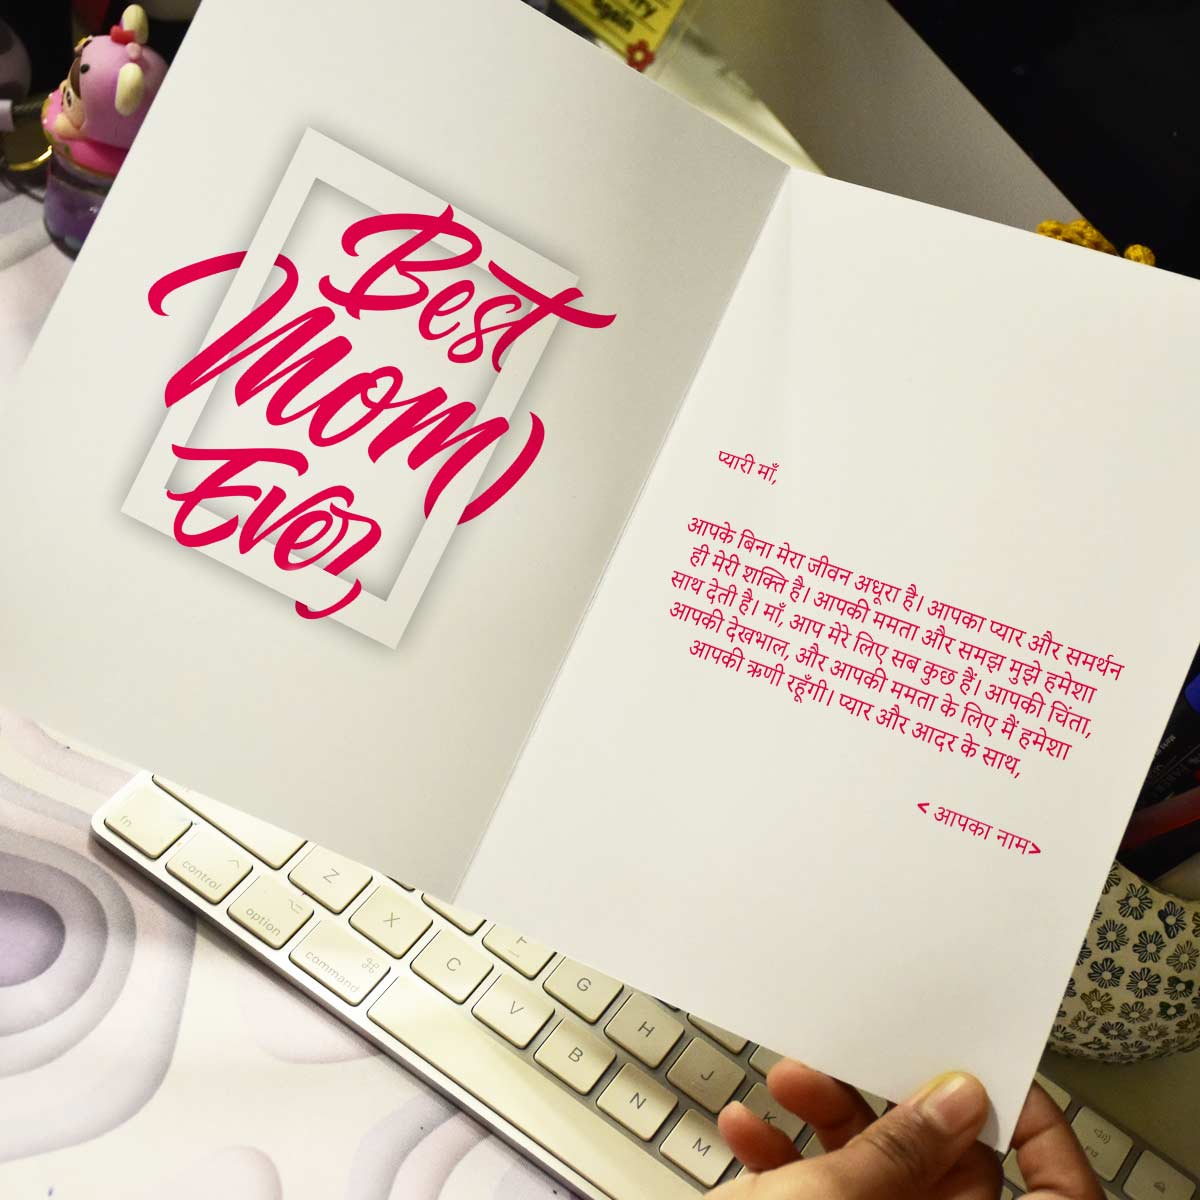 Best
Mom
Ever
प्यारी माँ,
आपके बिना मेरा जीवन अधूरा है। आपका प्यार और समर्थन
ही मेरी शक्ति है। आपकी ममता और समझ मुझे हमेशा
साथ देती है। माँ, आप मेरे लिए सब कुछ हैं। आपकी चिंता,
आपकी देखभाल, और आपकी ममता के लिए मैं हमेशा
आपकी ऋणी रहूँगी। प्यार और आदर के साथ,
< आपका नाम>
again
fn
control
option
command
Z
X
C
V
B
N
M
F
G
H
J
K
F12